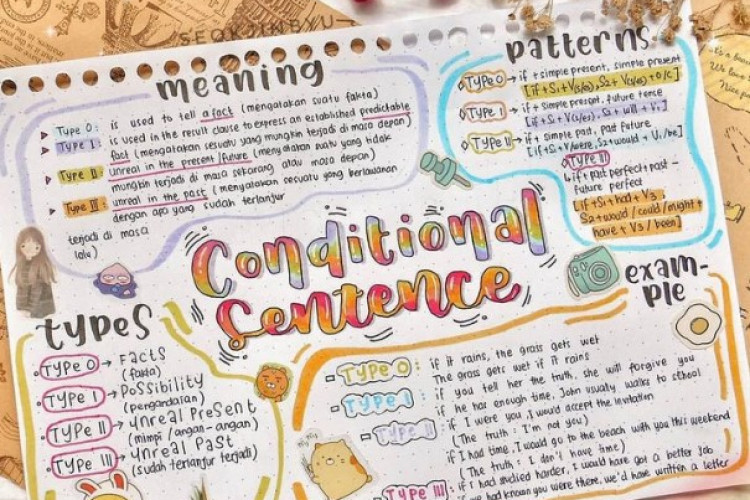 SEOKJINBYU
meaning
Type 0 : is used to tell a fact (mengatakan suatu fakta)
Type I : is used in the result clause to express an established predictable
fact (mengatakan sesuatu yang mungkin terjadi di masa depan)
Type II : unreal in the present/future (menyatakan suatu yang tidak
mungkin terjadi di masa sekarang atau masa depan)
Type III : unreal in the past (menyatakan sesuatu yang berlawanan
dengan apa yang sudah terlanjur
terjadi di masa
lalu)
patterns
Type 0 → if + simple present, simple present
[if + S1 + V(s/es), S2 + V(s/es) + o/c]
Type I → if + simple present, future tense
[if + S1 + V(s/es), S2 + will + V1]
Type II → if + simple past, past future
[if + S1 + V2/were, S2 + would + V1/be]
Type III
↳ if + past perfect + past
future perfect
[if + S1 + had + V3,
S2 + would / could / might +
have + V3 / been]
Conditional
Sentence
types
Type 0 → Facts
(fakta)
Type I → Possibility
(pengandaian)
Type II → Unreal Present
(mimpi / angan-angan)
Type III → Unreal Past
(sudah terlanjur terjadi)
exam-
ple
- Type 0 : if it rains, the grass gets wet
The grass gets wet if it rains
- Type I : if you tell her the truth, she will forgive you
if he has enough time, John usually walks to school
- Type II : if I were you, I would accept the invitation
(The truth : I'm not you)
if I had time, I would go to the beach with you this weekend
(The truth : I don't have time)
Type III : if I had studied harder, I would have got a better job
if we had known you were there, we'd have written a letter
It's a